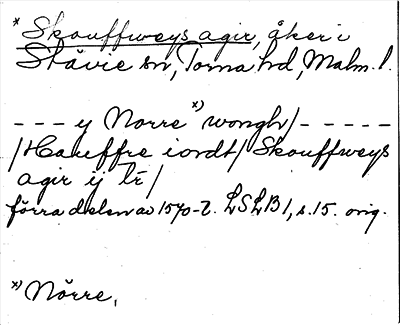 * Skouffweys agir, åker i
Stävie sn, Torna hd, Malm. l.
- - - y Norre *) wongh/ - - - - -
/Hauffre iordt/ Skouffweys
agir ij lr̄/
förra delen av 1570-t. LSLB 1, s. 15. orig.
*) Nörre.